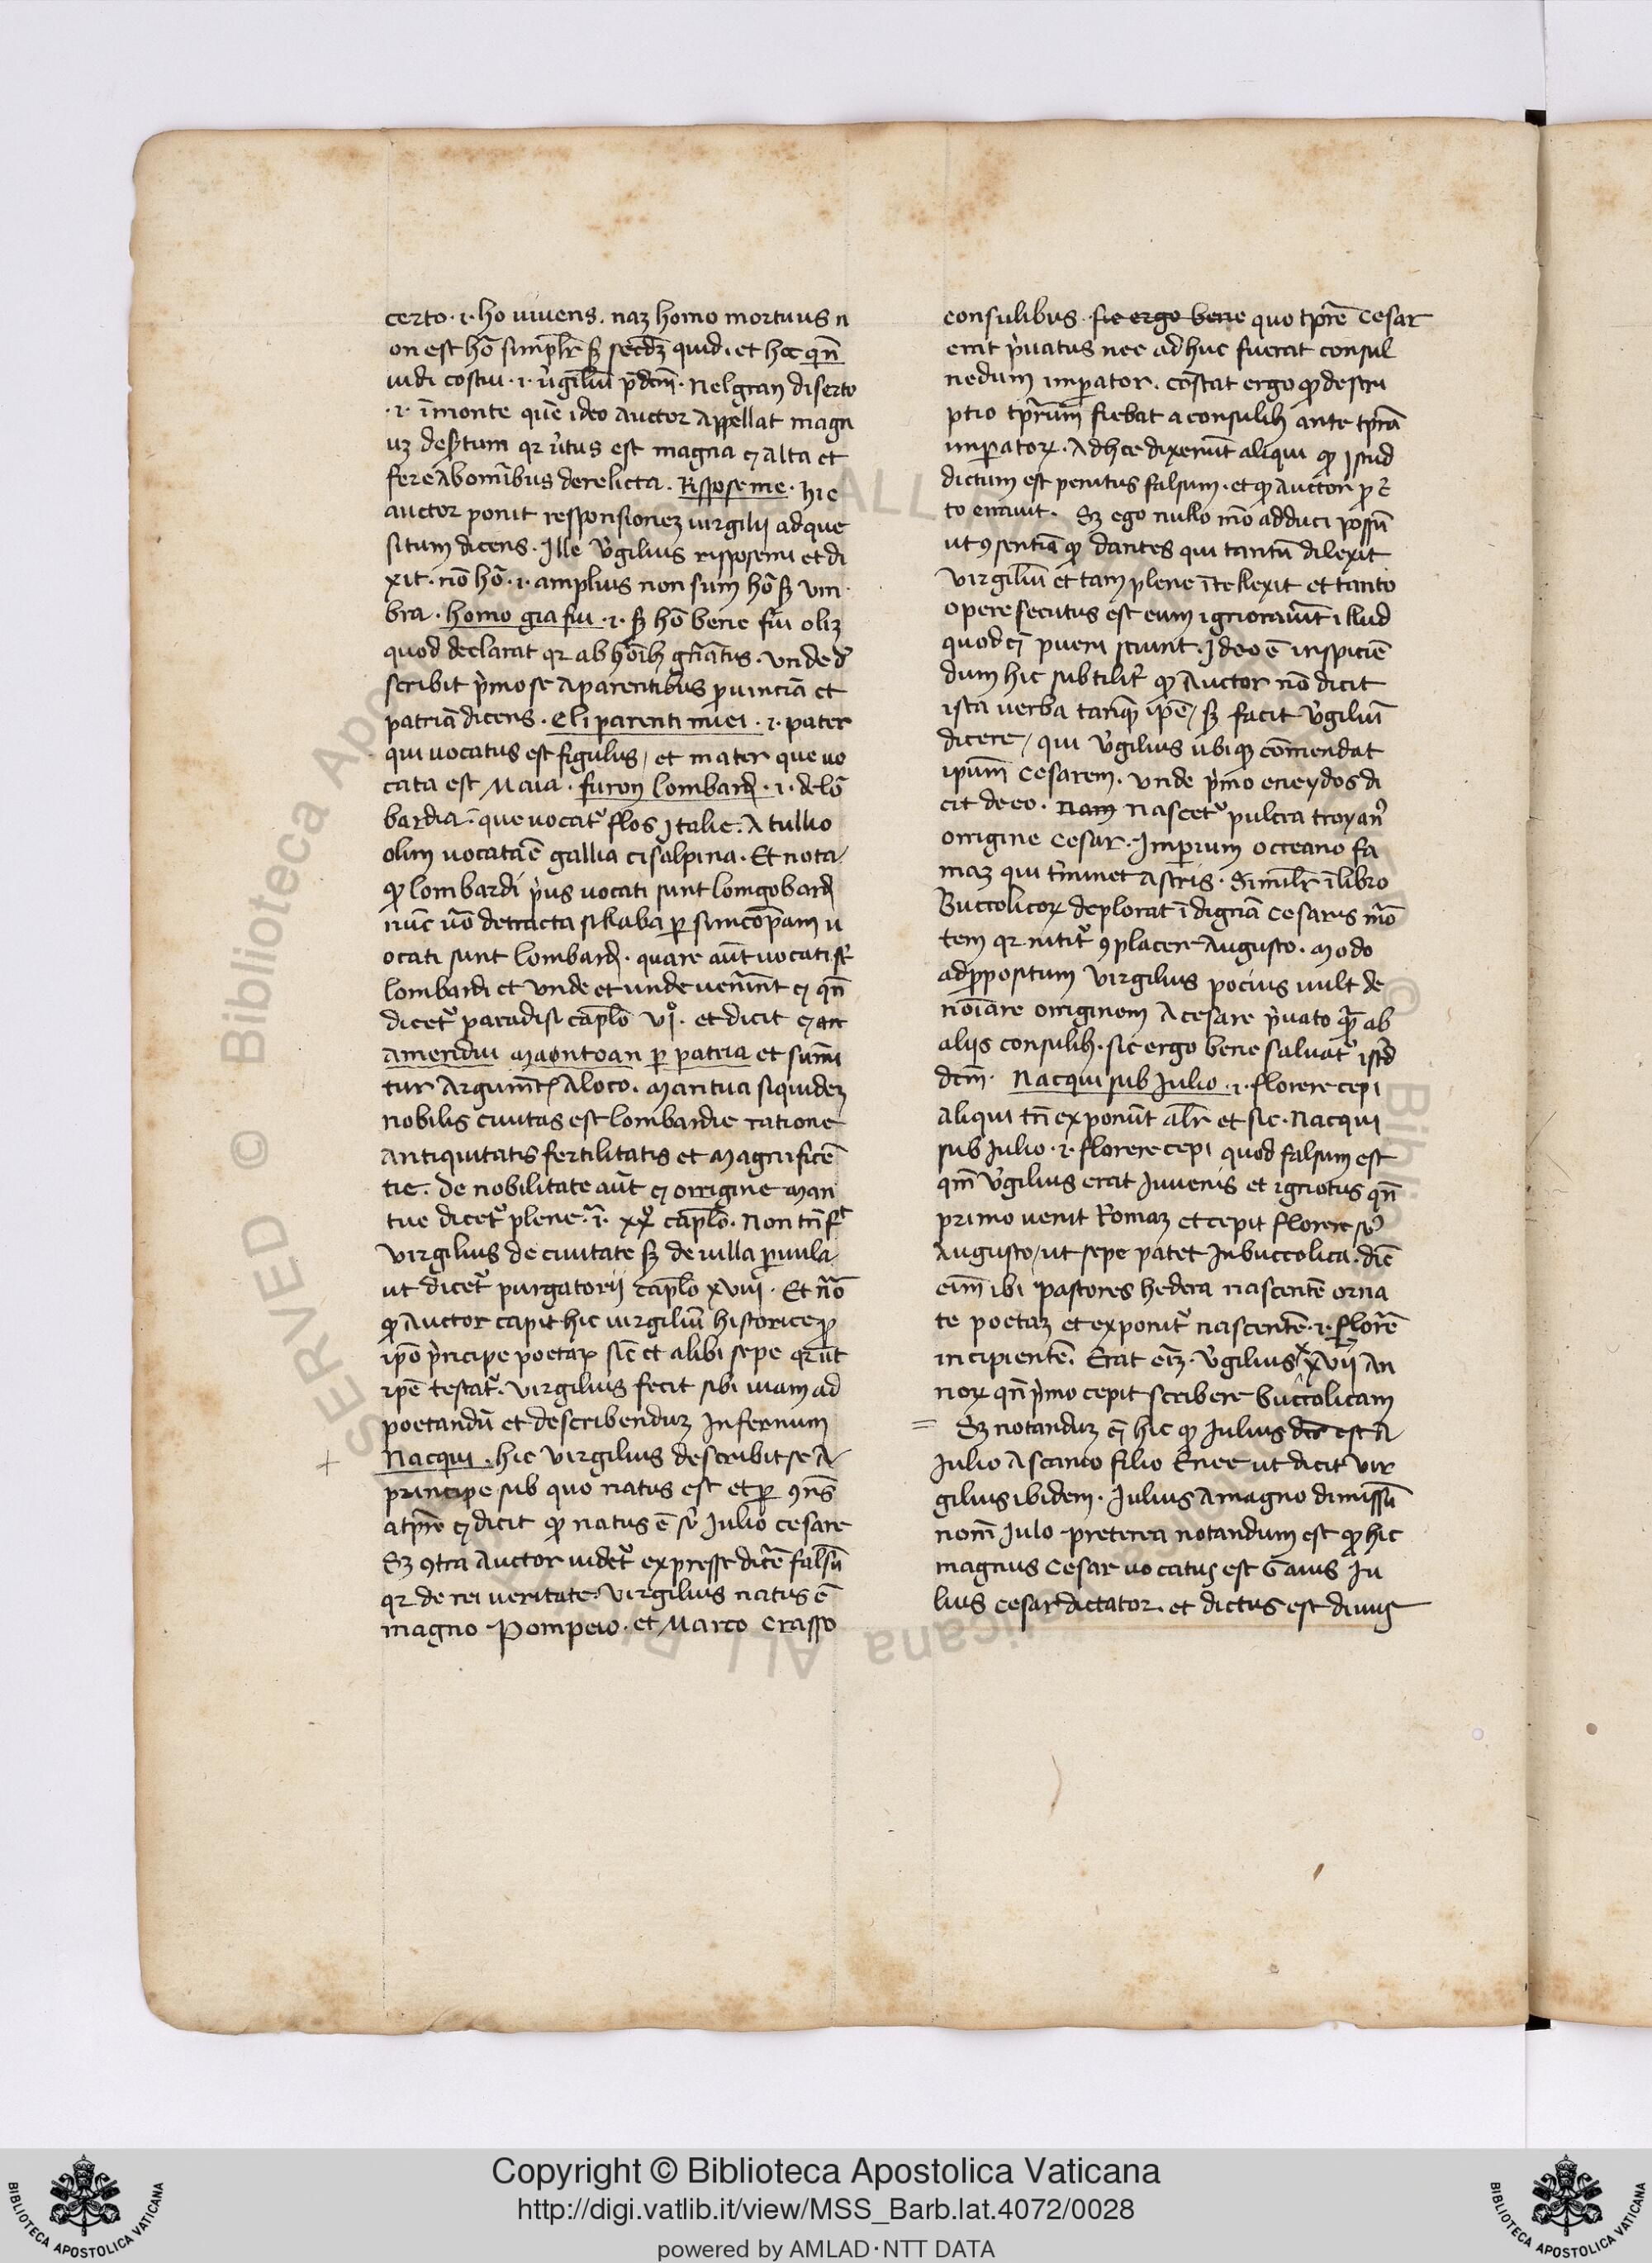 certo · i · ho viuens . naz homo mortuus n
on est hō simpl̄r sȝ secd̄ȝ quid . et hoc qn̄
uidi costui · i · v̓giliū p̄dcm̄ · Nel gran diserto
· i · ī monte quē ideo auctor appellat magn
uȝ des̓tum qr v̓tus est magna ⁊ alta et
fere ab omībus derelicta . Rispose me · hic
auctor ponit responsionez uirgilij ad que
situm dicens . Ille v̓gilius risposemi et di
xit · nō hō · i · amplius non sum hō sȝ vm
bra . homo gia fui · i · sȝ hō bene fui oliȝ
quod declarat qr ab hōībȝ gn̄atus . vnde d̓
scribit p̓mo se a parentibus ꝓuinciā et
patriā dicens . E li parenti miei · i · pater
qui uocatus est figulus / et mater que uo
cata est Maia . furon lombard̓ · i · de lō
bardia . que uocat̓ flos Italie . A tullio
olim uocata ē gallia cisalpina . Et nota
ꝙ lombardi p̓us uocati sunt longobard̓
nūc u̓o detracta sillaba ꝑ sincopam u
ocati sunt lombard̓ . quare aūt uocati st̓
lombardi et vnde et unde uenerūt ⁊ qn̄
dicet̓ paradisi caplo vjº . et dicit ⁊ an
amendui maontoan ꝑ patria et sumi
tur argumt̄ a loco . mantua siquideȝ
nobilis ciuitas est lombardie ratione
antiquitatis fertilitatis et magnificē
tie . de nobilitate aūt ⁊ origine man
tue dicet̓ plene . ī . xxº caplo . Non tn̄ f̓t
virgilius de ciuitate sȝ de uilla paruula
ut dicet̓ purgatorij caplo xviij . Et nō
ꝙ auctor capit hic uirgiliū historice ꝓ
ipo p̓ncipe poetaꝝ sic et alibi sepe qr ut
ipē testat̓ . virgilius fecit sibi uiam ad
poetandū et describenduȝ Infernum
Nacqui . hic virgilius describit se a
principe sub quo natus est et ꝑ ꝯns̄
a tpr̄e ⁊ dicit ꝙ natus ē s̓ Iulio cesare
Sȝ ꝯtra auctor uidet̓ expresse dicē falsū
qr de rei ueritate . virgilius natus ē
magno Pompeio . et Marco Crasso
consulibus . sic ergo bene quo tpr̄e Cesar
erat p̓uatus nec ad huc fuerat consul
nedum imperator . cōstat ergo ꝙ descri
ptio tpr̄um fiebat a consulibȝ ante tpr̄a
imperatoꝝ . Ad hec dixerūt aliqui ꝙ istud
dictum est penitus falsum . et ꝙ auctor ꝓ c̓
to errauit . Sȝ ego nullo mō adduci possū
ut ꝯsentiā ꝙ dantes qui tantū dilexit
virgiliū et tam plene ītellexit et tanto
opere secutus est eum ignorau̓it illud
quod ⁊ pueri sciunt . Ideo ē inspiciē
dum hic subtilit̓ ꝙ auctor nō dicit
ista uerba tanqȝ ipē / sȝ facit v̓giliū
dicere / qui v̓gilius ubiqȝ cōmendat
ipum Cesarem . vnde p̓mo eneydos di
cit de eo . Nam nascet̓ pulcra troyan̓
origine Cesar . Imperium occeano fa
maȝ qui t̓minet astris . Similr̄ ī libro
Buccolicoꝝ deplorat īdignā Cesaris mō
tem qr nitit̓ ꝯplacere augusto . modo
ad ꝓpositum virgilius pocius uult de
noīare originem a cesare p̓uato qȝ ab
aliis consulibȝ . sic ergo bene saluat̓ ist̓d
dcm̄ . Nacqui sub Julio · i · florere cepi
aliqui tn̄ exponūt alr̄ et sic . Nacqui
sub Iulio · i · florere cepi quod falsum est
qm̄ v̓gilius erat Iuuenis et ignotus qn̄
primo uenit Romaȝ et cepit florere s̓
Augusto / ut sepe patet In buccolica . dic̄
eim̄ ibi pastores hedera nascentē orna
te poetaȝ et exponit̓ nascentē · i · florē
incipientē . Erat eiȝ . v̓gilius xxvij an
noꝝ qn̄ p̓mo cepit scribere buccolicam
Sȝ notanduȝ ē hic ꝙ Iulius dcs̄ est a
Iulio Ascanio filio Enee ut dicit vir
gilius ibidem . Iulius a magno dimissū
nom̄ Iulo . preterea notandum est ꝙ hic
magnus Cesar uocatus est Gaius Iu
lius cesar dictator . et dictus est diuus
Copyright © Biblioteca Apostolica Vaticana
http://digi.vatlib.it/view/MSS_Barb.lat.4072/0028
powered by AMLAD·NTT DATA